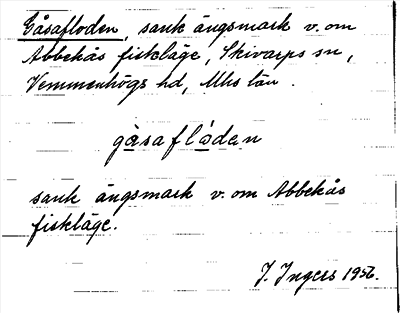 Gåsafloden, sank ängsmark v. om
Abbekås fiskläge, Skivarps sn,
Vemmenhögs hd, Mhs län.
gåsaflådan
sank ängsmark v. om Abbekås
fiskläge.
J. Ingers 1956.